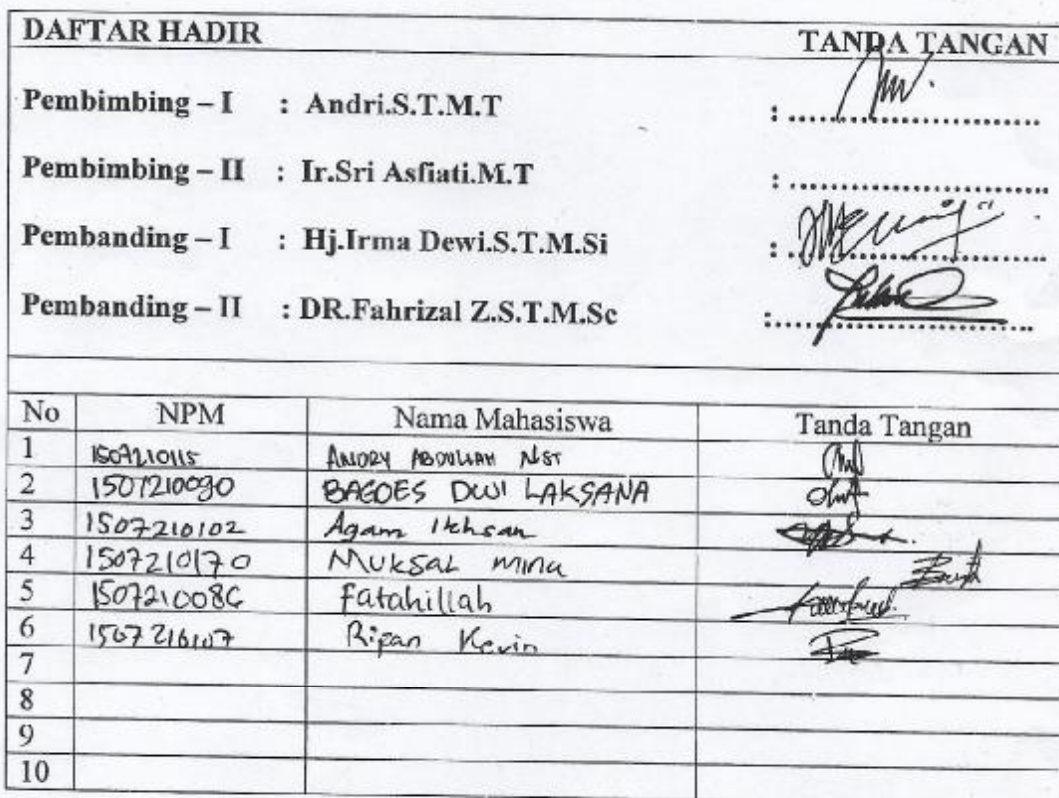 DAFTAR HADIR TANDA TANGAN
Pembimbing – I : Andri.S.T.M.T : ..............................
Pembimbing – II : Ir.Sri Asfiati.M.T : ..............................
Pembanding – I : Hj.Irma Dewi.S.T.M.Si : ..............................
Pembanding – II : DR.Fahrizal Z.S.T.M.Sc : ..............................
No NPM Nama Mahasiswa Tanda Tangan
1 1507210115 ANDRY ABDULLAH NST
2 1507210090 BAGOES DWI LAKSANA
3 1507210102 Agam Ikhsan
4 1507210170 MUKSAL MINA
5 Fatahillah
6 1507210107 Ripan Kevin
7
8
9
10